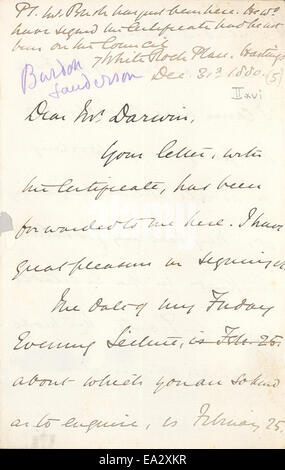 P.S. Mr. Busk has just been here. He wd.
have signed the Certificate had he not
been on the Council
7 White Rock Place, Hastings
Burdon
Sanderson
Dec. 31st 1880. (5)
II xvi
Dear Mr. Darwin,
Your letter, with
the Certificate, has been
forwarded to me here. I have
great pleasure in signing it.
The date of my Friday
Evening Lecture, is Feb. 25.
about which you are so kind
as to enquire, is February 25.
alamy stock photo
EA2XKR
www.alamy.com